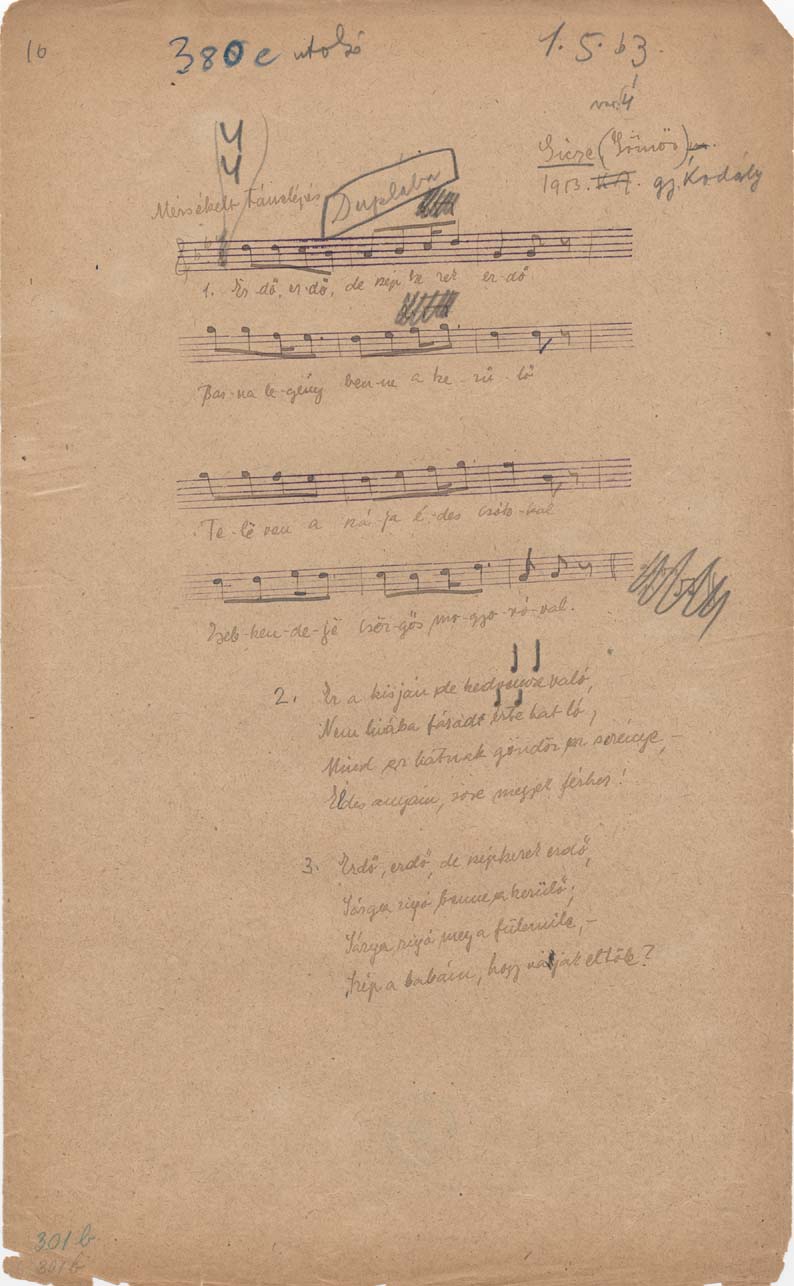 16
380 e utolsó
1. 5. 63.
var. 4
Gicze (Gömör)
1913. gy. Kodály
4
4
Mérsékelt tánclépés
Duplába
1. Er-dő, er-dő, de szép ke-rek er-dő
Bar-na le-gény ben-ne a ke-rü-lő
Te-le van a é-des csók-kal
Zseb-ken-dő-je csör-gős mo-gyo-ró-val.
2. Ez a kislján de kedvemre való,
Nem hiába fáradt érte hat ló,
Mind az hatnak göndör az serénye, –
Édes anyám, férhez!
3. Erdő, erdő, de szép kerek erdő,
Sárga rigó benne a kerülő;
Sárga rigó meg a fülemile, –
Szép a babám, hogy váljak el tőle?
301 b
301 b